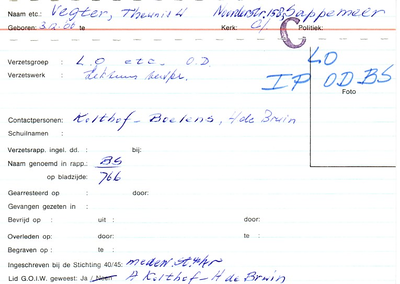 Naam etc.: Vegter, Theunis H Noorderstr. 158, Sappemeer
Geboren: 3.2.00 te Kerk: G/ Politiek:
C
LO
Verzetsgroep : L.O etc. O.D.
Verzetswerk : 
IP OD.BS
Foto
Contactpersonen: Kolthof - Boelens, H de Bruin
Schuilnaam :
Verzetsrapp. ingel. dd. : bij:
Naam genoemd in rapp.: BS
op bladzijde: 766
Gearresteerd op : door:
Gevangen gezeten in :
Bevrijd op : uit : door:
Overleden op: te : door:
Begraven op : te :
Ingeschreven bij de Stichting 40/45: medew. st. 
Lid G.O.I.W. geweest: Ja / Neen A Kolthof - H de Bruin